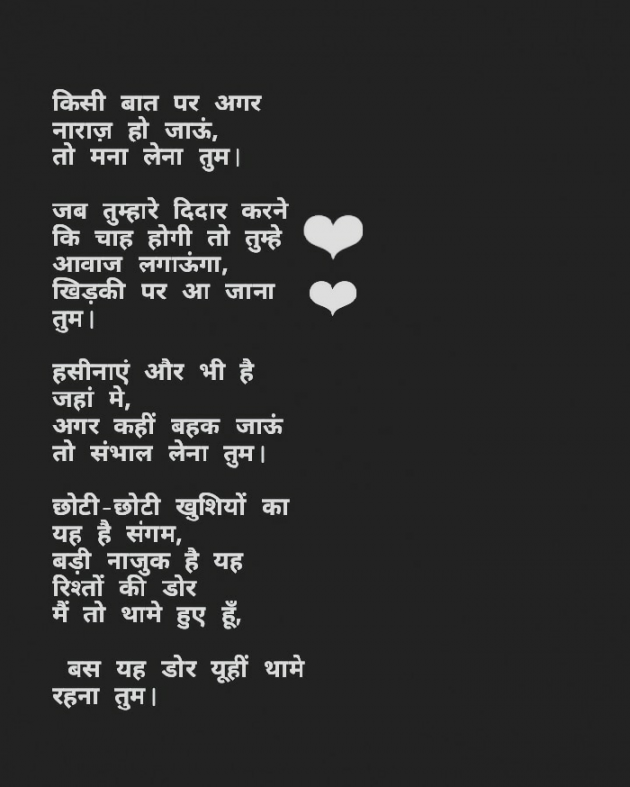 किसी बात पर अगर
नाराज़ हो जाऊं,
तो मना लेना तुम।
जब तुम्हारे दिदार करने
कि चाह होगी तो तुम्हे
आवाज लगाऊंगा,
खिड़की पर आ जाना
तुम।
हसीनाएं और भी है
जहां मे,
अगर कहीं बहक जाऊं
तो संभाल लेना तुम।
छोटी-छोटी खुशियों का
यह है संगम,
बड़ी नाजुक है यह
रिश्तों की डोर
मैं तो थामे हुए हूँ,
बस यह डोर यूहीं थामे
रहना तुम।